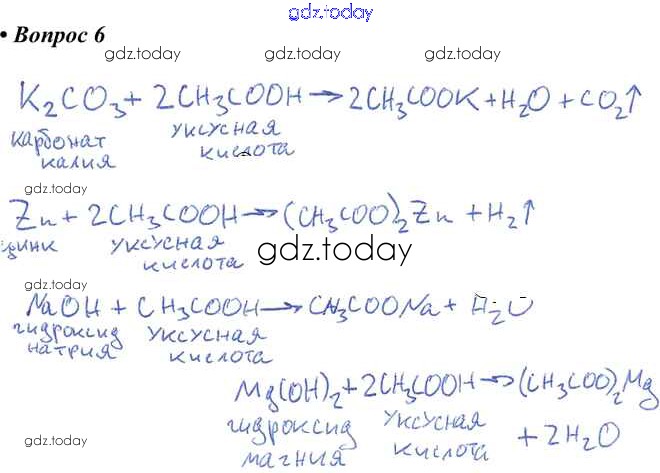 gdz.today
• Вопрос 6
gdz.today gdz.today gdz.today
K₂CO₃ + 2CH₃COOH → 2CH₃COOK + H₂O + CO₂↑
карбонат уксусная
калия кислота
gdz.today
Zn + 2CH₃COOH → (CH₃COO)₂Zn + H₂↑
цинк уксусная
кислота gdz.today
gdz.today
NaOH + CH₃COOH → CH₃COONa + H₂O
гидроксид уксусная
натрия кислота
Mg(OH)₂ + 2CH₃COOH → (CH₃COO)₂Mg
гидроксид уксусная + 2H₂O
магния кислота
gdz.today